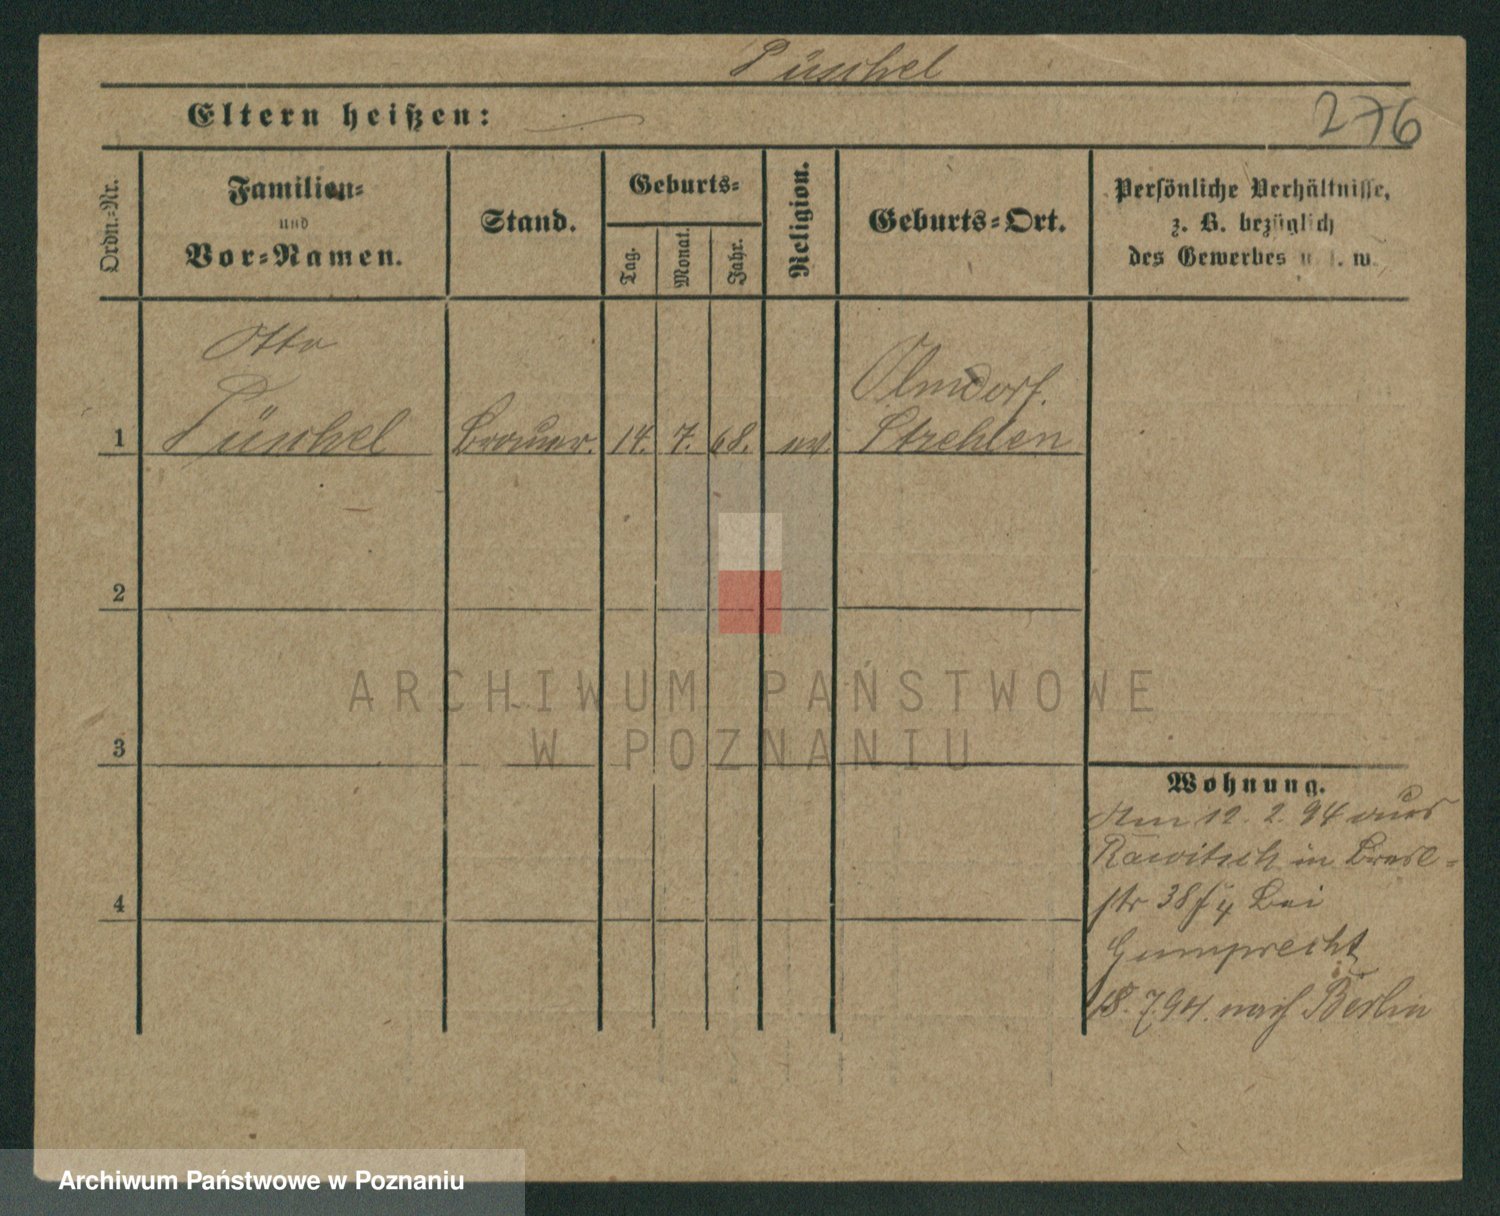 Püschel
276
Eltern heißen:
Ordn.-Nr.
Familien-
und
Vor-Namen.
Stand.
Geburts-
Tag.
Monat.
Jahr.
Religion.
Geburts-Ort.
Persönliche Verhältnisse,
z. B. bezüglich
des Gewerbes u. s. w.
Otto
1 Püschel Brauer. 14. 7. 68. ev. Strehlen
2
3
4
Wohnung.
Am 12. 2. 94 aus
Rawitsch in Bresl-
str 38 bei
Gumprecht
18. 7. 94. nach Berlin
ARCHIWUM PAŃSTWOWE
W POZNANIU
Archiwum Państwowe w Poznaniu